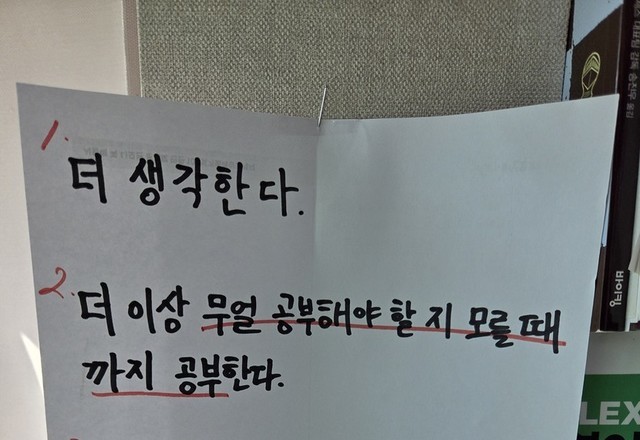 1. 더 생각한다.
2. 더 이상 무얼 공부해야 할 지 모를 때
까지 공부한다.
LEX